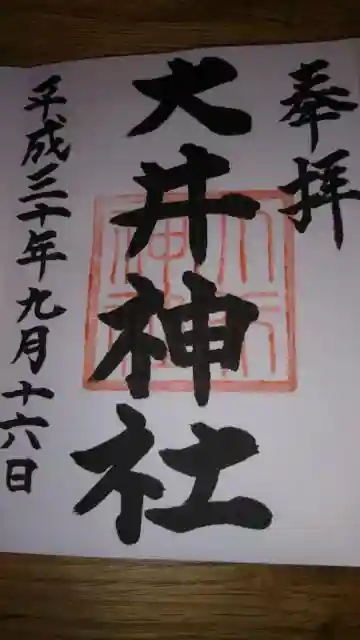 奉拝
大井神社
平成三十年九月十六日